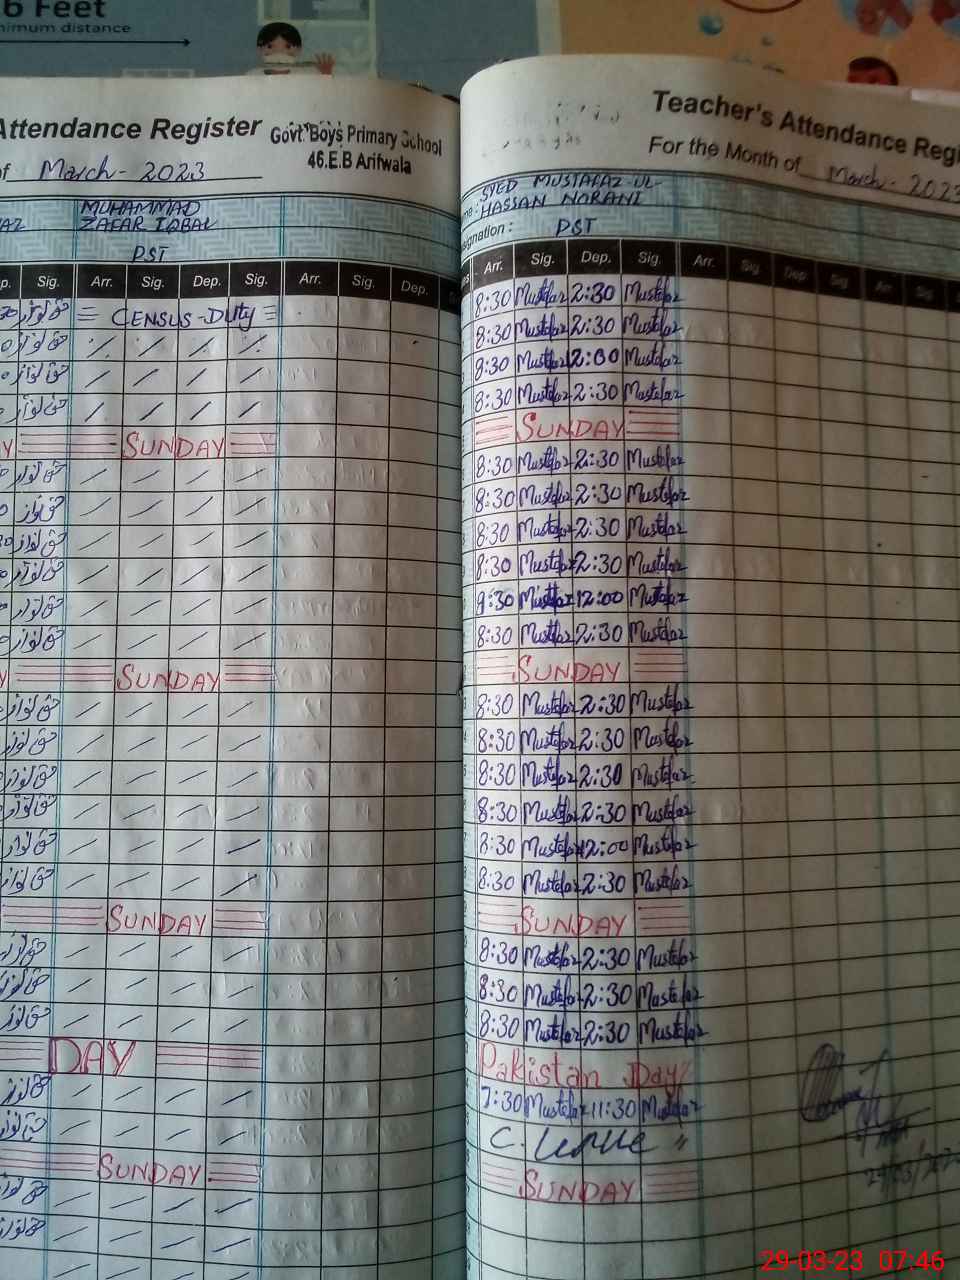 6 Feet
nimum distance
Attendance Register
Govt. Boys Primary School
46.E.B Arifwala
of March - 2023
MUHAMMAD
ZAFAR IQBAL
PST
Sig. Arr. Sig. Dep. Sig. Arr. Sig. Dep.
حق نواز CENSUS-Duty
حق نواز
حق نواز
حق نواز
SUNDAY
حق نواز
حق نواز
حق نواز
حق نواز
حق نواز
حق نواز
SUNDAY
حق نواز
حق نواز
حق نواز
حق نواز
حق نواز
حق نواز
SUNDAY
حق نواز
حق نواز
حق نواز
DAY
حق نواز
حق نواز
SUNDAY
حق نواز
حق نواز
Teacher's Attendance Regi
For the Month of March - 2023
me: SYED MUSTAFAZ-UL-
HASSAN NORANI
signation : PST
Arr. Sig. Dep. Sig. Arr. Sig Dep. Sig Arr Sig
8:30 Mustafaz 2:30 Mustafaz
8:30 Mustafaz 2:30 Mustafaz
8:30 Mustafaz 12:00 Mustafaz
8:30 Mustafaz 2:30 Mustafaz
SUNDAY
8:30 Mustafaz 2:30 Mustafaz
8:30 Mustafaz 2:30 Mustafaz
8:30 Mustafaz 2:30 Mustafaz
8:30 Mustafaz 2:30 Mustafaz
8:30 Mustafaz 12:00 Mustafaz
8:30 Mustafaz 2:30 Mustafaz
SUNDAY
8:30 Mustafaz 2:30 Mustafaz
8:30 Mustafaz 2:30 Mustafaz
8:30 Mustafaz 2:30 Mustafaz
8:30 Mustafaz 2:30 Mustafaz
8:30 Mustafaz 12:00 Mustafaz
8:30 Mustafaz 2:30 Mustafaz
SUNDAY
8:30 Mustafaz 2:30 Mustafaz
8:30 Mustafaz 2:30 Mustafaz
8:30 Mustafaz 2:30 Mustafaz
Pakistan Day
7:30 Mustafaz 11:30 Mustafaz
C. Leave "
SUNDAY
29-03-23 07:46